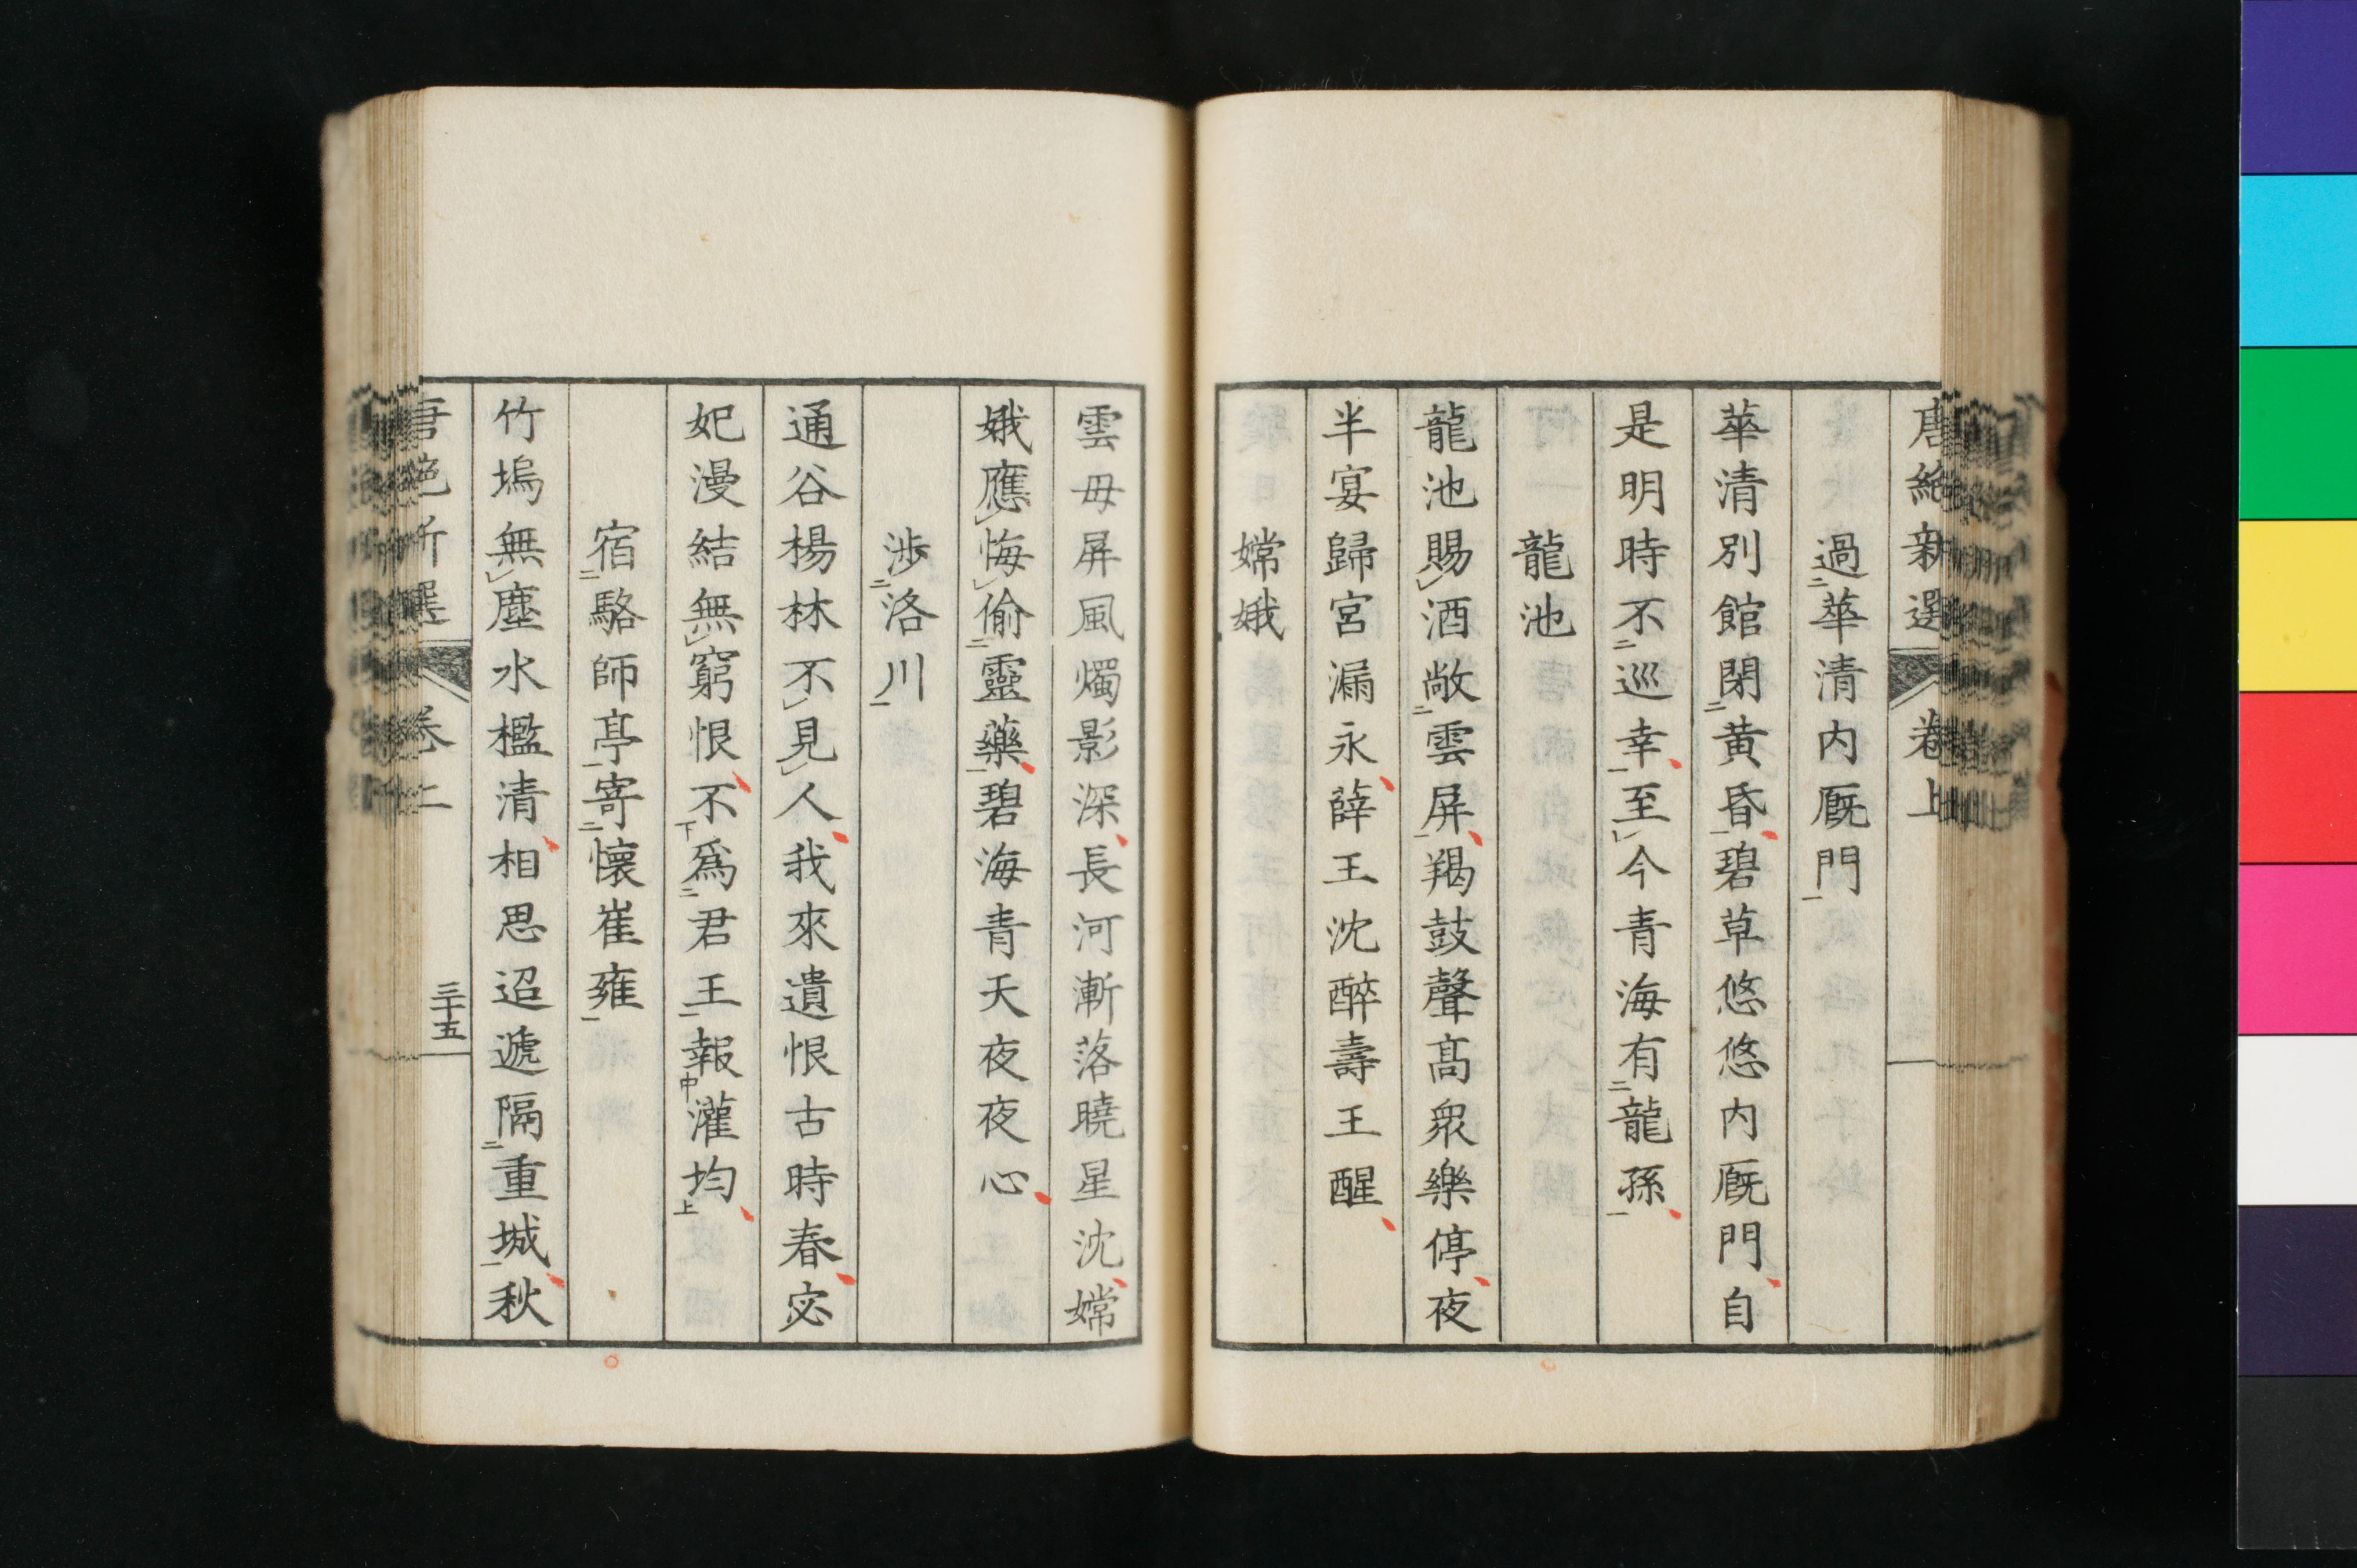 唐絶新選 卷上
過二華清内厩門一
華清別館閉二黄昏一碧草悠悠内厩門自
是明時不二巡幸一至レ今青海有二龍孫一
龍池
龍池賜レ酒敞二雲屏一羯鼓聲高衆樂停夜
半宴歸宮漏永薛王沈醉壽王醒
嫦娥
雲母屏風燭影深長河漸落曉星沈嫦
娥應レ悔レ偷二靈藥一碧海青天夜夜心
渉二洛川一
通谷楊林不レ見レ人我來遺恨古時春宓
妃漫結無レ窮恨不下爲二君王一報中灌均上
宿二駱師亭一寄二懷崔雍一
竹塢無レ塵水檻清相思迢遞隔二重城一秋
唐絶新選 卷上 三十五